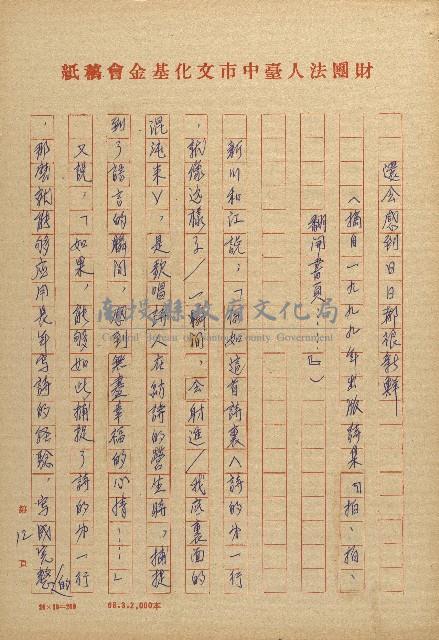 財團法人臺中市文化基金會稿紙
還會感到日日都很新鮮
(摘自一九九九年出版詩集『拍、拍、
翻開書頁…』)
新川和江說:「譬如這首詩裏〈詩的第一行
,就像這樣子/一瞬間,會射進/我底裏面的
混沌來〉,是歌唱詩人在紡詩的營生時,捕捉
到了語言的瞬間,感到無盡幸福的心情……」
又說,「如果,能夠如此捕捉了詩的第一行
,那麼就能夠應用長年寫詩的經驗,寫成完整的
第12頁
南投縣政府文化局
Cultural Bureau of Nantou County Government
20×10=200
68.3.2,000本